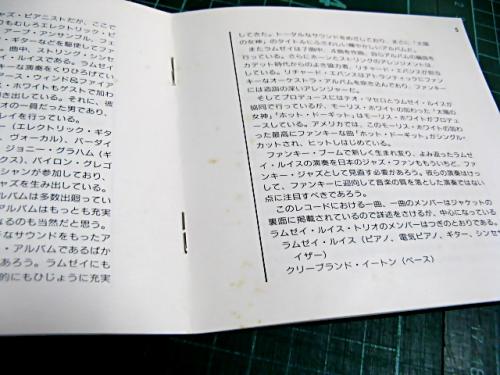 ジャズ・ピアニストだが、ここで
りもむしろエレクトリック・ピ
、アープ・アンサンブル、フェ
・ギターなどを駆使してファ
、曲中、ストリング・シンセ
・ルイスである。ラムセイ
ーな演奏をくりひろげてい
ース・ウィンド&ファイア
・ホワイトもゲストで加わ
き出している。それに、彼
の一員だった男であり、
レイを行っている。
ー（エレクトリック・ギタ
、ヴォーカル）、バーダイ
）、ジョニー・グラハム（ギ
クス）、バイロン・グレゴ
シャンが参加しており、
ジャズを生み出している。
アルバムは多数出廻ってい
アルバムはもっとも充実
なるのも当然だと思う。
なサウンドをもったア
・アルバムであるばか
あろう。ラムセイにも
的にもひじょうに充実
5
してきた。トータルなサウンドをめざしており、まさに「太陽
の女神」のタイトルにふさわしい
またラムセイは7曲中、
行っている。さらにホーンとストリングのアレンジメントは
カデット時代からのよき協力者、リチャード・エバンスが担当
している。リチャード・エバンスはアトランティックにファン
キーなオーケストラ・アルバムを吹き込んでおり、ファンキー
には造詣の深いアレンジャーだ。
そしてプロデュースにはテオ・マセロとラムセイ・ルイスが
協同で行っているが、モーリス・ホワイトの加わった「太陽の
女神」、「ホット・ドーギット」はモーリス・ホワイトがプロデュ
ースしている。アメリカでは、このモーリス・ホワイトの加わ
った最高にファンキーな曲「ホット・ドーギット」がシングル・
カットされ、ヒットしはじめている。
ファンキー・ブームで新しく生まれ変り、よみ返ったラムセ
イ・ルイスの演奏を日本のジャズ・ファンももういちど、ファ
ンキー・ジャズとして見直す必要があろう。彼らの演奏はけっ
して、ファンキーに迎向して音楽の質を落とした演奏ではない
点に注目すべきであろう。
このレコードにおける一曲、一曲のメンバーはジャケットの
裏面に掲載されているので詳述をさけるが、中心になっている
ラムセイ・ルイス・トリオのメンバーはつぎのとおりである。
ラムセイ・ルイス（ピアノ、電気ピアノ、ギター、シンセサ
イザー）
クリーブランド・イートン（ベース）